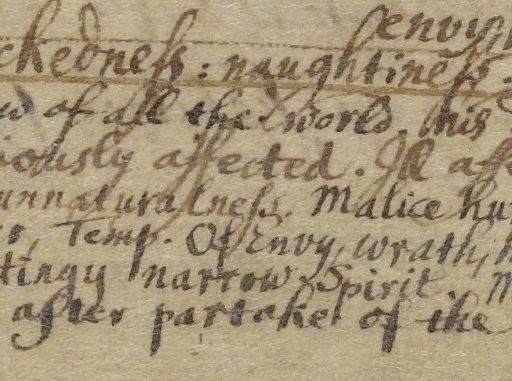 envy
ckedness: naughtiness.
of all the world, his
iously affected. Ill aff
unnaturalness. Malice
r, Temp. Of Envy, wrath,
tingy narrow Spirit. M
after partaker of the